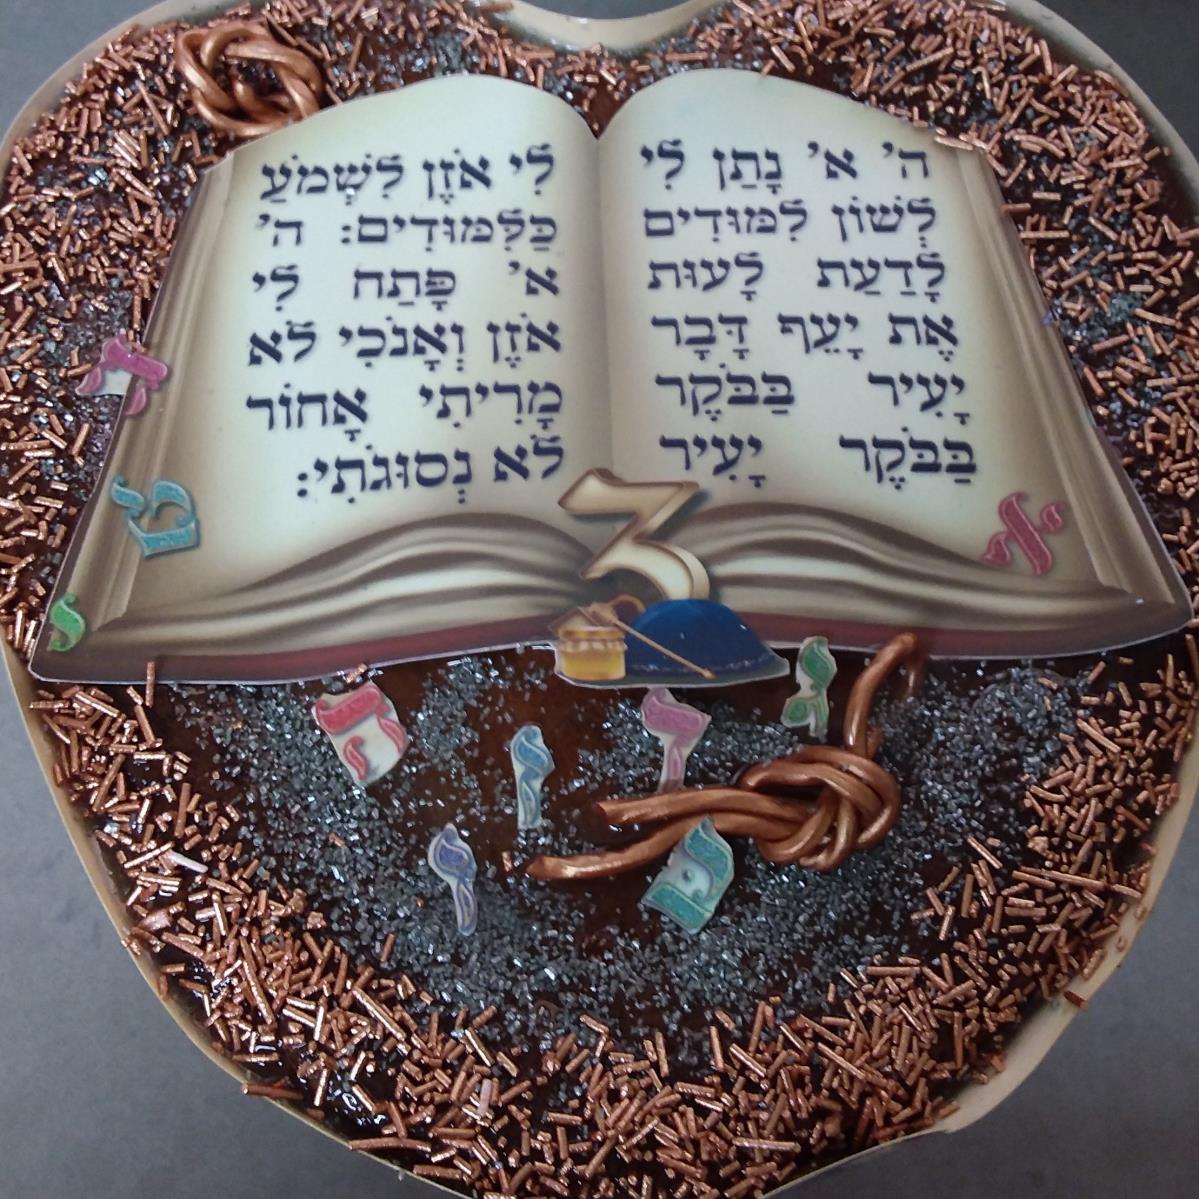 ה' א' נָתַן לִי
לְשׁוֹן לִמּוּדִים
לָדַעַת לָעוּת
אֶת יָעֵף דָּבָר
יָעִיר בַּבֹּקֶר
בַּבֹּקֶר יָעִיר
לִי אֹזֶן לִשְׁמֹעַ
כַּלִּמּוּדִים: ה'
א' פָּתַח לִי
אֹזֶן וְאָנֹכִי לֹא
מָרִיתִי אָחוֹר
לֹא נְסוּגֹתִי:
3
א
ש